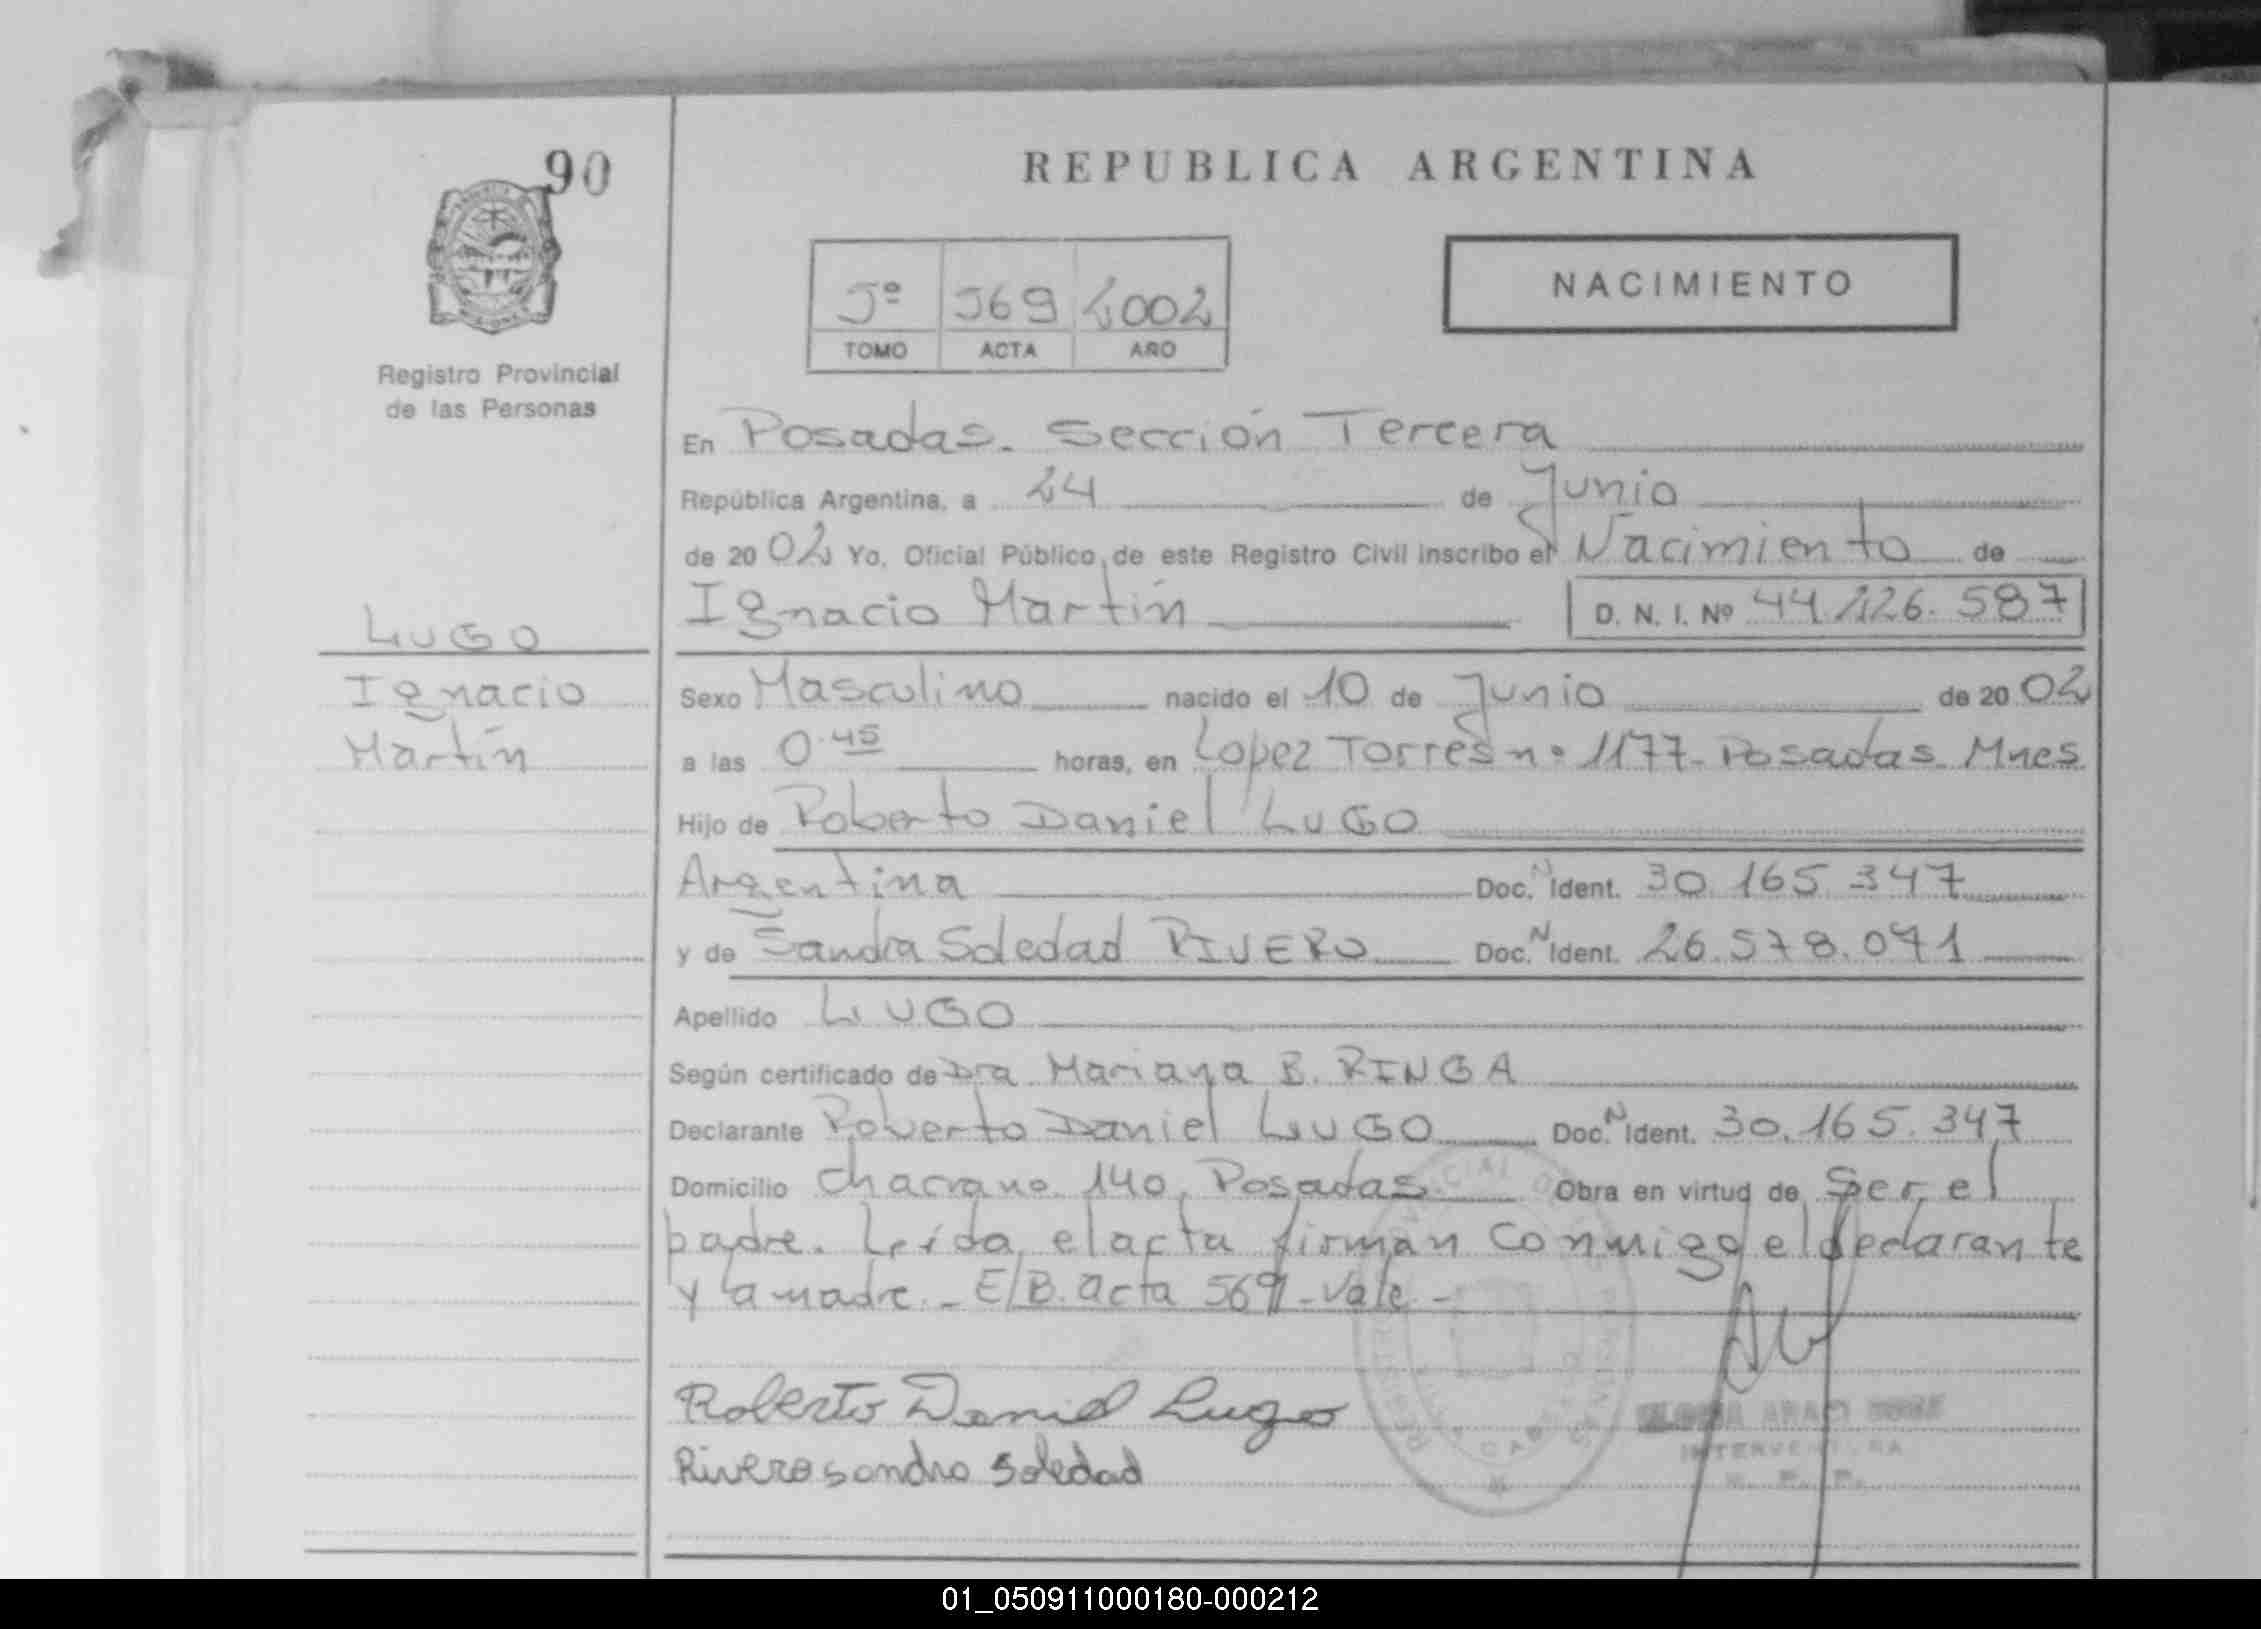 90
REPUBLICA ARGENTINA
5º 569 2002
TOMO ACTA AÑO
NACIMIENTO
Registro Provincial
de las Personas
En Posadas. Sección Tercera
República Argentina, a 24 de Junio
de 2002 Yo, Oficial Público, de este Registro Civil inscribo el Nacimiento de
Ignacio Martín D. N. I. Nº 44.226.587
LUGO
Ignacio
Martín
Sexo Masculino nacido el 10 de Junio de 2002
a las 0.45 horas, en Lopez Torres nº 1177- Posadas. Mnes
Hijo de Roberto Daniel LUGO
Argentina Doc. N Ident. 30.165.347
y de Sandra Soledad RIVERO Doc. N Ident. 26.578.071
Apellido LUGO
Según certificado de Dra. Mariana B. RINGA
Declarante Roberto Daniel LUGO Doc. N Ident. 30.165.347
Domicilio Chacra nº 140, Posadas. Obra en virtud de Ser el
padre. Leída el acta firman conmigo el declarante
y la madre.- E/B. acta 569-Vale-
Roberto Daniel Lugo
Rivero Sandra Soledad
INTERVENTORA
01_050911000180-000212